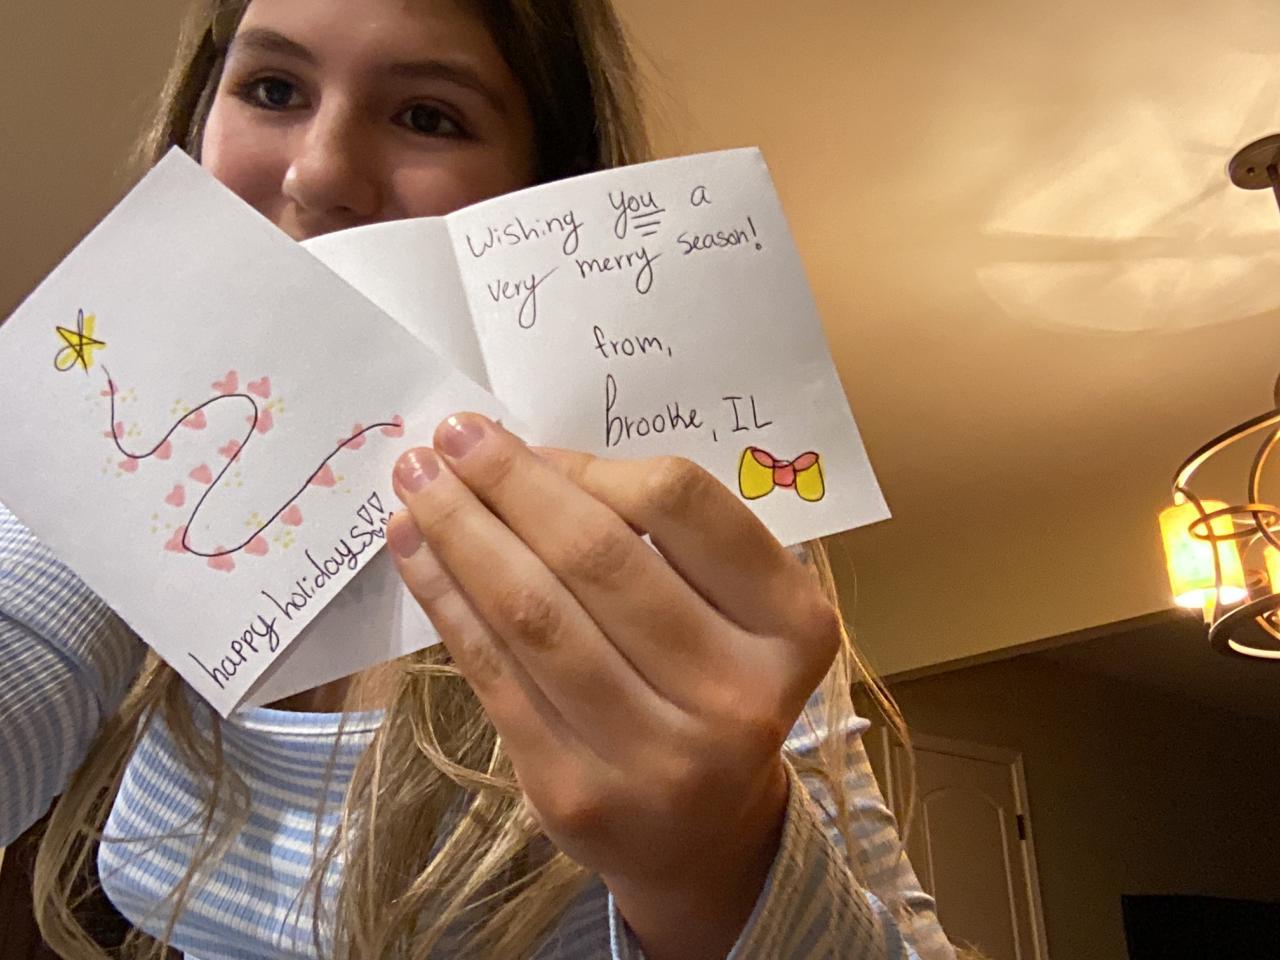 happy holidays
Wishing you a
very merry season!
from,
Brooke, IL